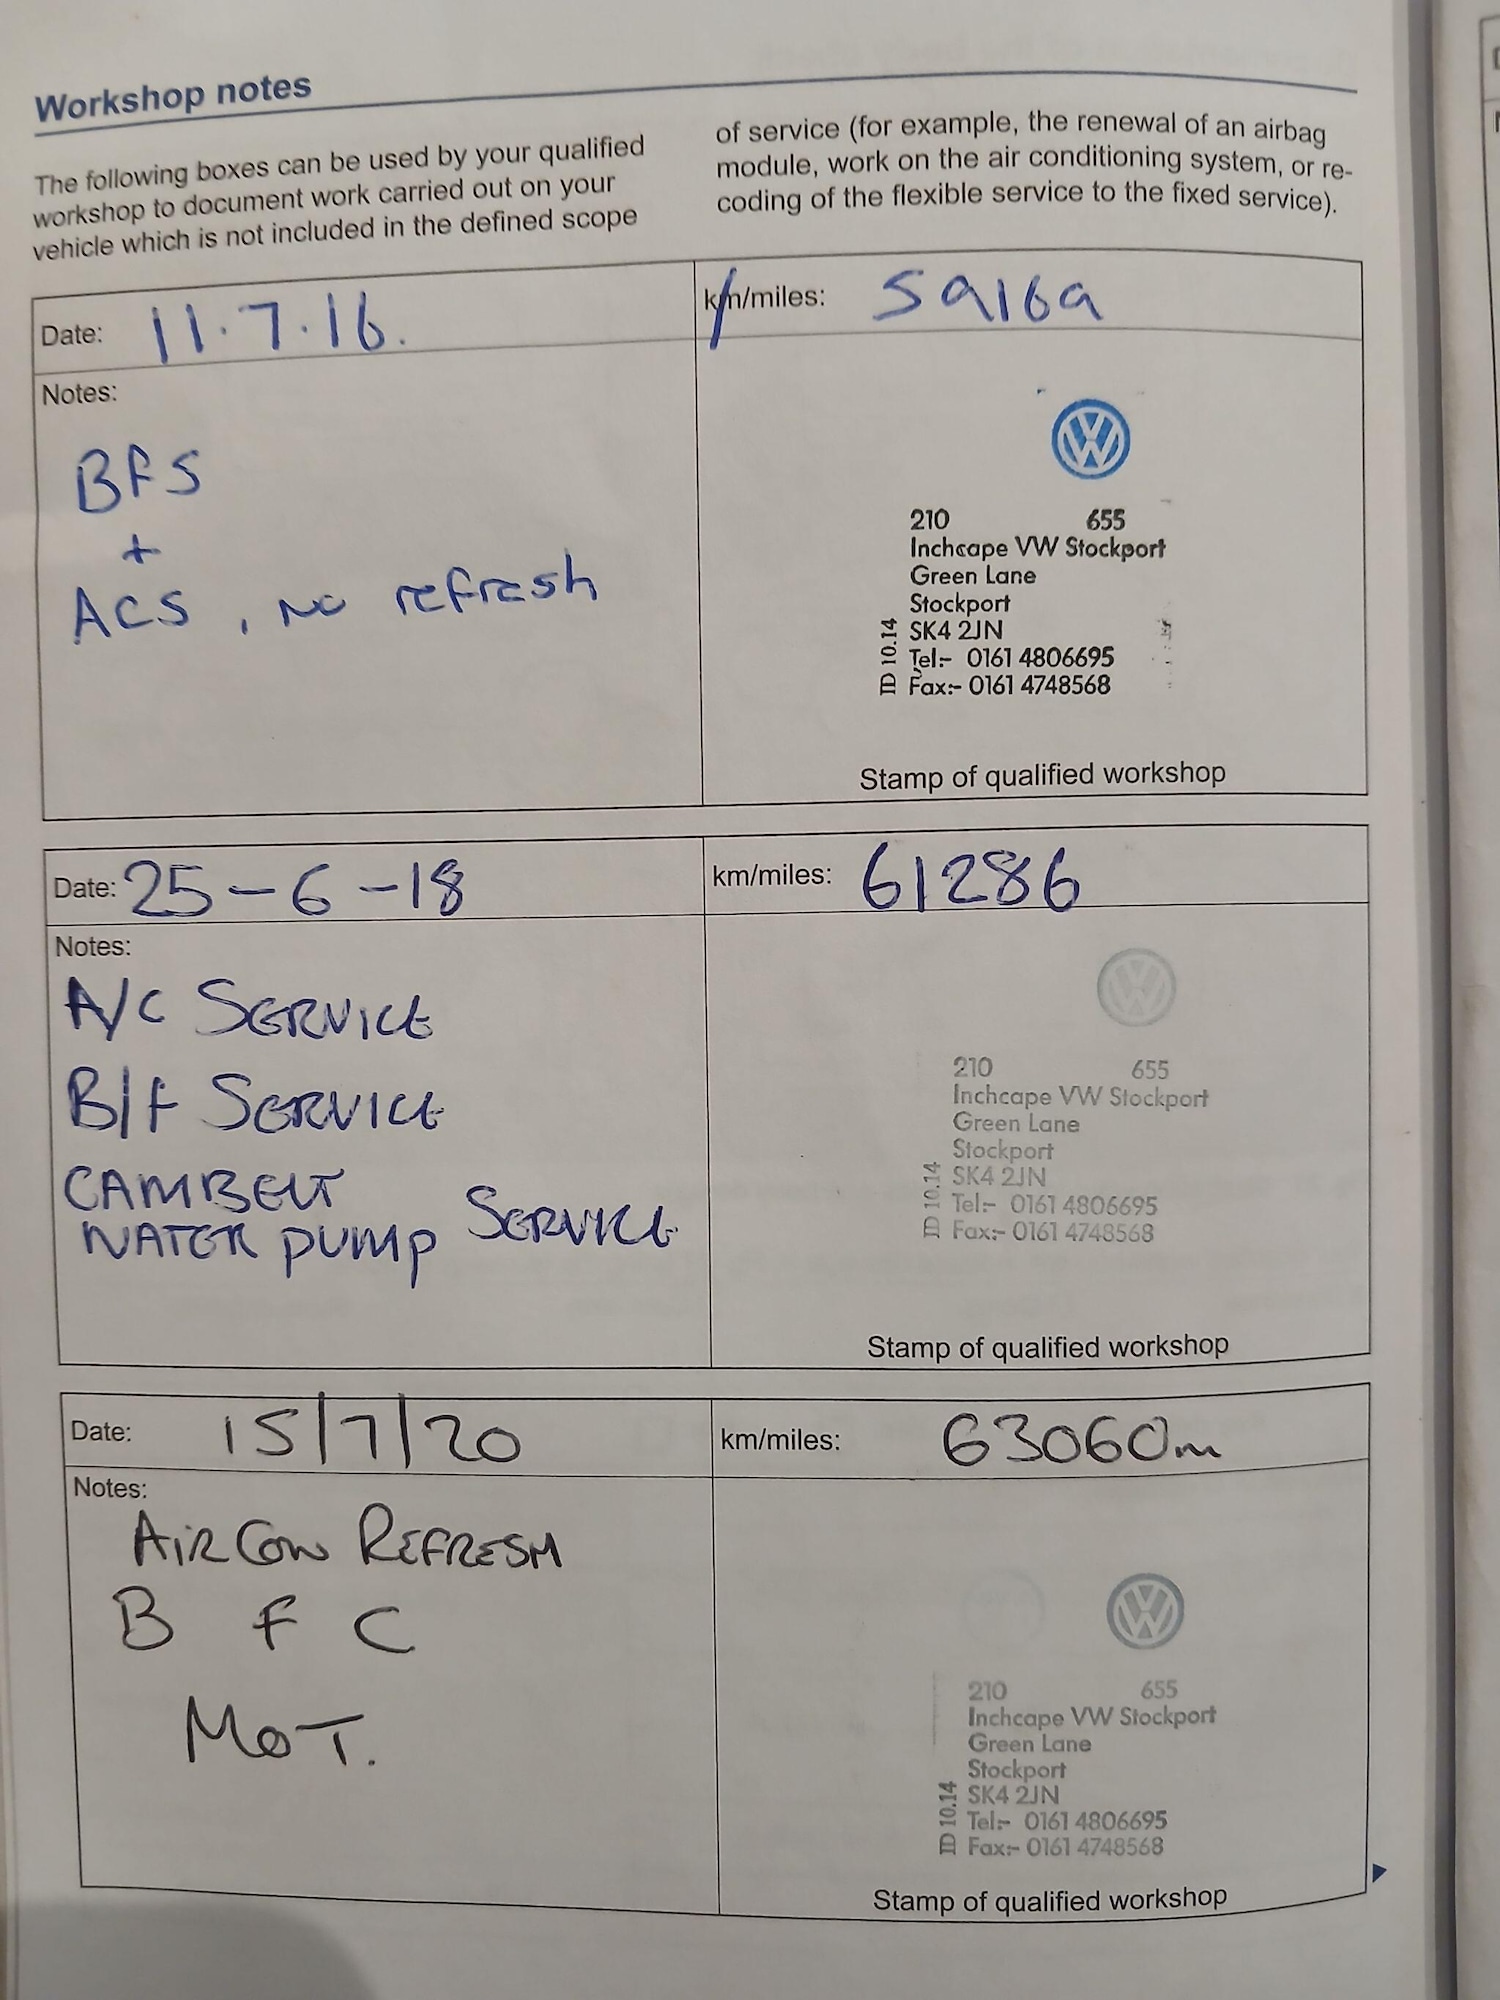 Workshop notes
The following boxes can be used by your qualified
workshop to document work carried out on your
vehicle which is not included in the defined scope
of service (for example, the renewal of an airbag
module, work on the air conditioning system, or re-
coding of the flexible service to the fixed service).
Date: 11.7.16.
km/miles: 59169
Notes:
BFS
+
ACS, no refresh
210 655
Inchcape VW Stockport
Green Lane
Stockport
SK4 2JN
Tel:- 0161 4806695
Fax:- 0161 4748568
ID 10.14
Stamp of qualified workshop
Date: 25-6-18
km/miles: 61286
Notes:
A/C SERVICE
B/F SERVICE
CAMBELT
WATER PUMP SERVICE
210 655
Inchcape VW Stockport
Green Lane
Stockport
SK4 2JN
Tel:- 0161 4806695
Fax:- 0161 4748568
ID 10.14
Stamp of qualified workshop
Date: 15/7/20
km/miles: 63060m
Notes:
AIR CON REFRESH
B F C
MOT.
210 655
Inchcape VW Stockport
Green Lane
Stockport
SK4 2JN
Tel:- 0161 4806695
Fax:- 0161 4748568
ID 10.14
Stamp of qualified workshop